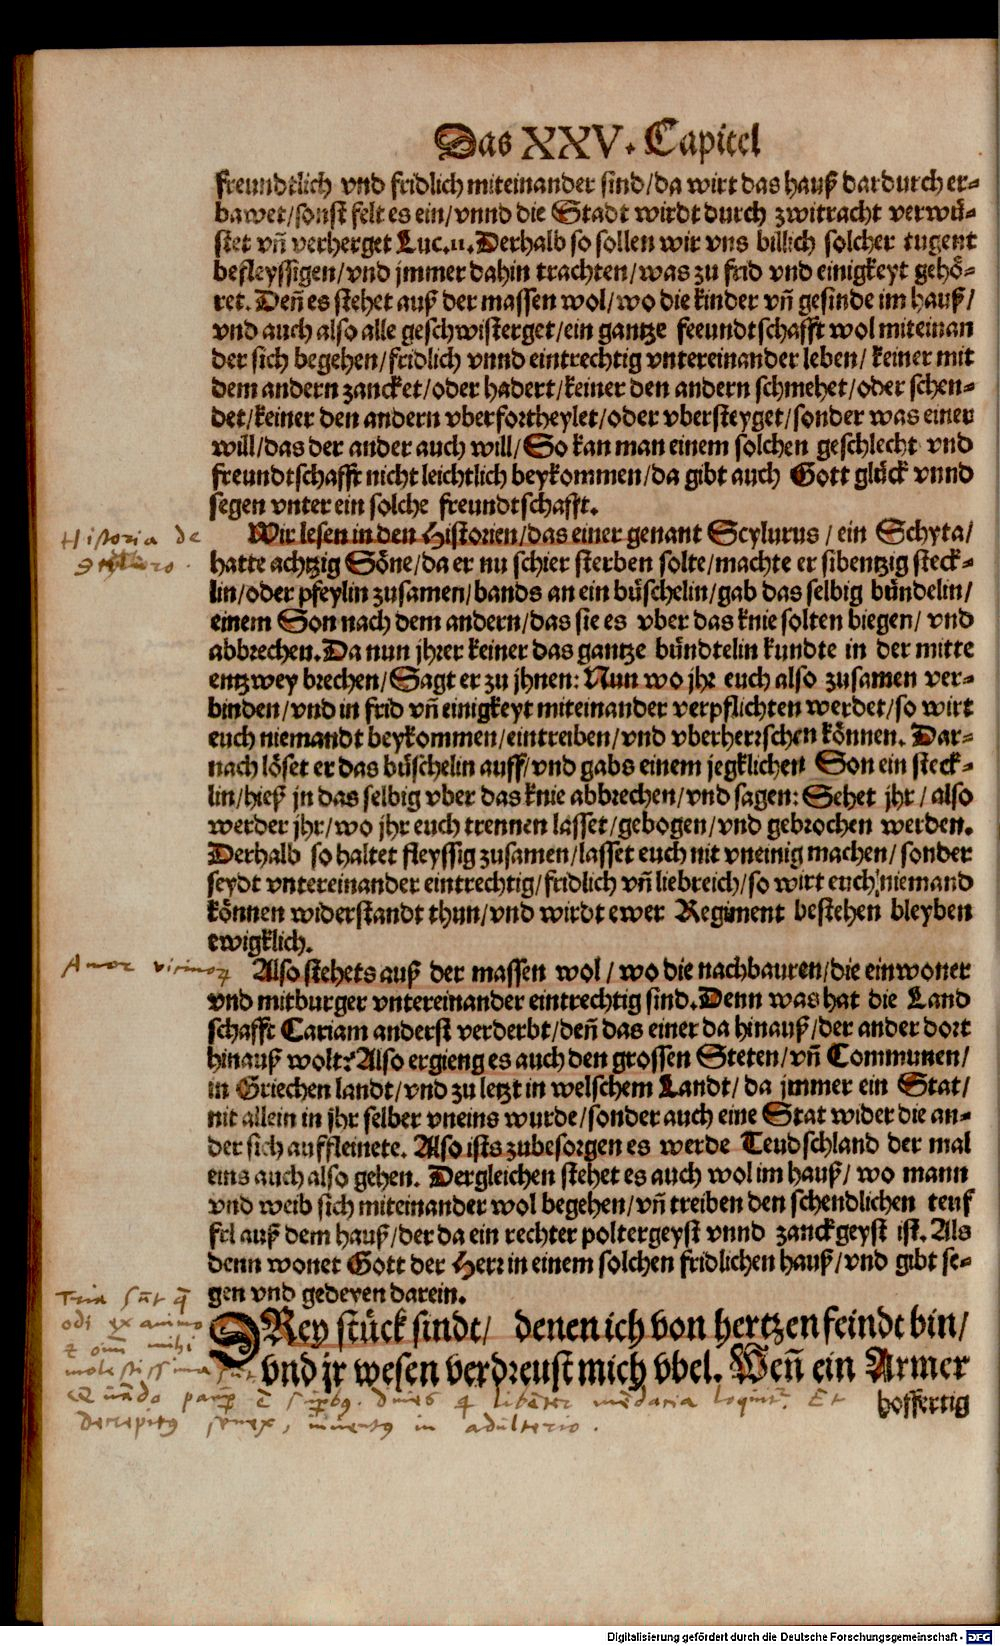 Das XXV. Capitel
freundtlich vnd fridlich miteinander sind/da wirt das hauß dardurch er-
bawet/sonst felt es ein/vnnd die Stadt wirdt durch zwitracht verwü-
stet vñ verherget Luc.11. Derhalb so sollen wir vns billich solcher tugent
befleyssigen/vnd jmmer dahin trachten/was zu frid vnd einigkeyt gehö-
ret. Deñ es stehet auß der massen wol/wo die kinder vñ gesinde im hauß/
vnd auch also alle geschwisterget/ein gantze feeundtschafft wol miteinan
der sich begehen/fridlich vnnd eintrechtig vntereinander leben/ keiner mit
dem andern zancket/oder hadert/keiner den andern schmehet/oder schen-
det/keiner den andern vberfortheylet/oder vbersteyget/sonder was einer
will/das der ander auch will/ So kan man einem solchen geschlecht vnd
freundtschafft nicht leichtlich beykommen/da gibt auch Gott glück vnnd
segen vnter ein solche freundtschafft.
Historia de
Scyluro.
Wir lesen in den Historien/das einer genant Scylurus/ ein Schyta/
hatte achtzig Söne/da er nu schier sterben solte/machte er sibentzig steck-
lin/oder pfeylin zusamen/bands an ein büschelin/gab das selbig bündelin/
einem Son nach dem andern/das sie es vber das knie solten biegen/ vnd
abbrechen. Da nun jhrer keiner das gantze bündtelin kundte in der mitte
entzwey brechen/Sagt er zu jhnen: Nun wo jhr euch also zusamen ver-
binden/vnd in frid vñ einigkeyt miteinander verpflichten werdet/so wirt
euch niemandt beykommen/eintreiben/vnd vberherrschen können. Dar-
nach löset er das büschelin auff/vnd gabs einem jegklichen Son ein steck-
lin/hieß jn das selbig vber das knie abbrechen/vnd sagen: Sehet jhr/ also
werder jhr/wo jhr euch trennen lasset/gebogen/vnd gebrochen werden.
Derhalb so haltet fleyssig zusamen/lasset euch nit vneinig machen/ sonder
seydt vntereinander eintrechtig/fridlich vñ liebreich/so wirt euch niemand
können widerstandt thun/vnd wirdt ewer Regiment bestehen bleyben
ewigklich.
Amor vicinoꝝ
Also stehets auß der massen wol/ wo die nachbauren/die einwoner
vnd mitburger vntereinander eintrechtig sind. Denn was hat die Land
schafft Cariam anderst verderbt/deñ das einer da hinauß/der ander dort
hinauß wolt? Also ergieng es auch den grossen Steten/vñ Communen/
in Griechen landt/vnd zu letzt in welschem Landt/ da jmmer ein Stat/
nit allein in jhr selber vneins wurde/sonder auch eine Stat wider die an-
der sich auffleinete. Also ists zubesorgen es werde Teudschland der mal
eins auch also gehen. Dergleichen stehet es auch wol im hauß/ wo mann
vnd weib sich miteinander wol begehen/vñ treiben den schendlichen teuf
fel auß dem hauß/der da ein rechter poltergeyst vnnd zanckgeyst ist. Als
denn wonet Gott der Herr in einem solchen fridlichen hauß/vnd gibt se-
gen vnd gedeyen darein.
DRey stück sindt/ denen ich von hertzen feindt bin/
vnd jr wesen verdreust mich vbel. Weñ ein Armer
hoffertig
Tria sūt q̄
odi ex animo
et mihi
molestissima sūt
Quādo paup ē supbꝰ. diues q libēter mēdacia loquit. Et
decrepitꝰ senex, inuentꝰ in adulterio.
Digitalisierung gefördert durch die Deutsche Forschungsgemeinschaft - DFG